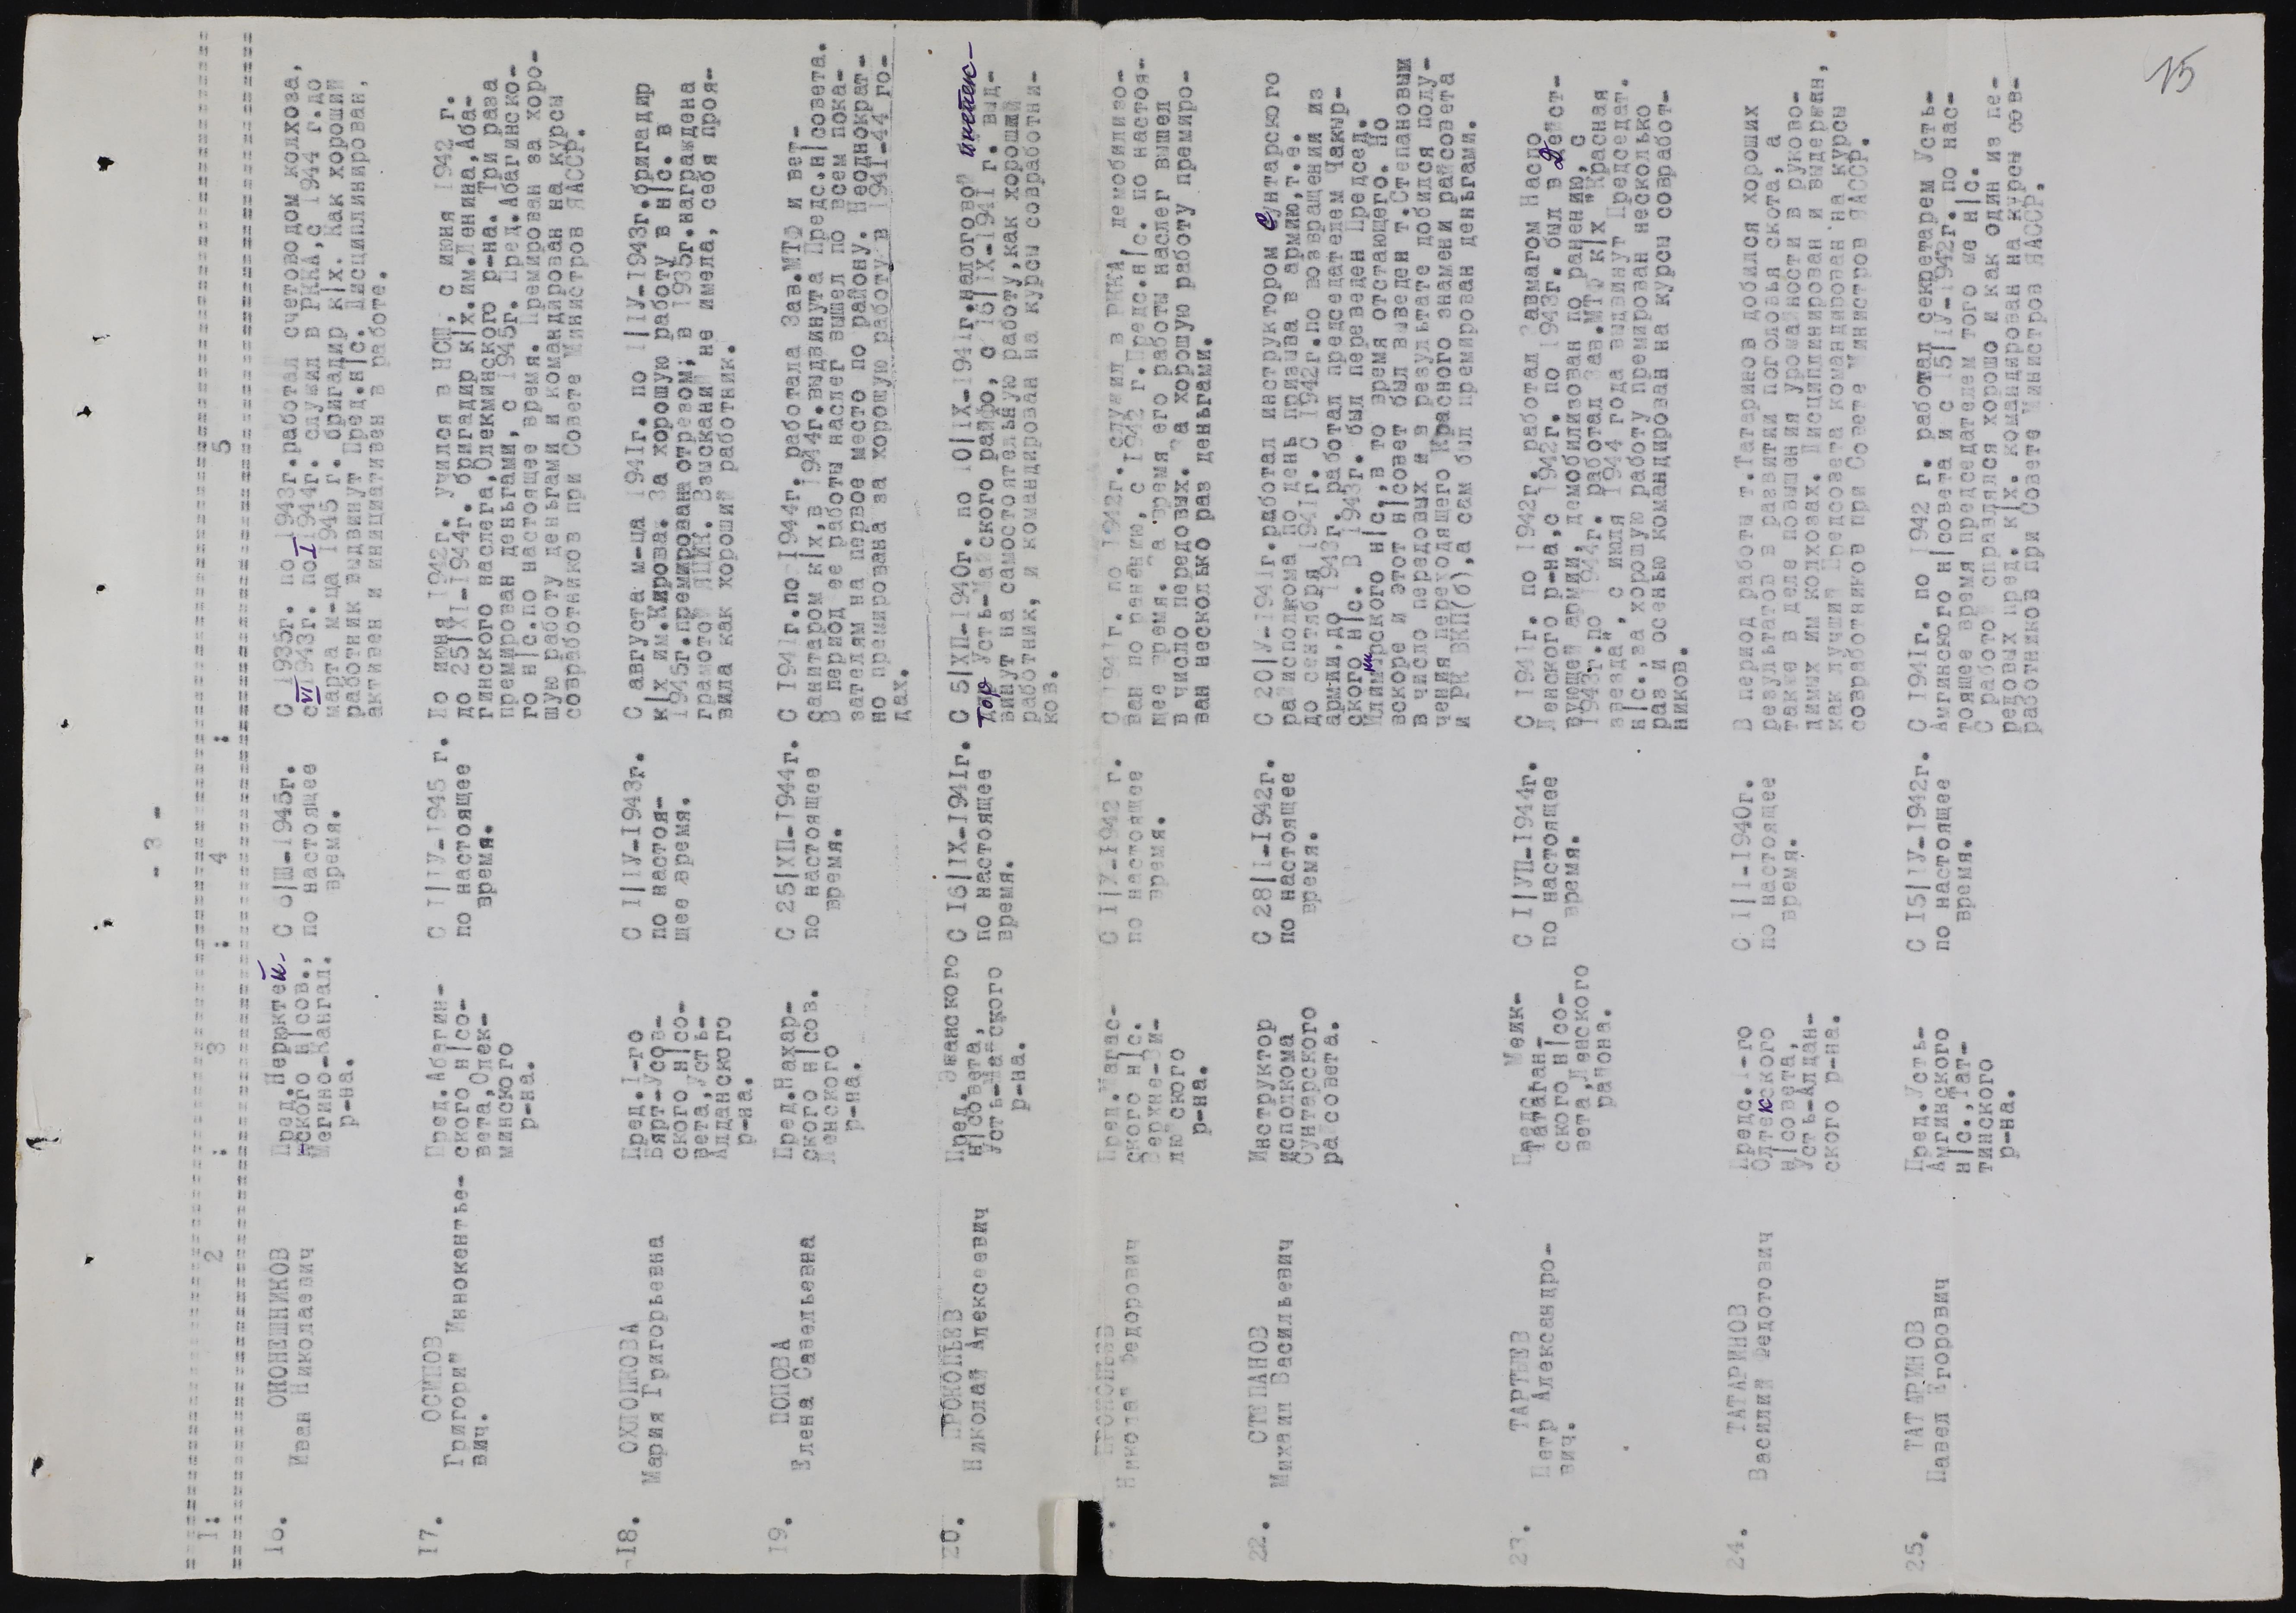 15
- 3 -
1: 2 : 3 : 4 : 5
16. ОКОНЕШНИКОВ
Иван Николаевич
Пред. Нерюктей-
ского н|сов.,
Мегино-Кангал.
р-на.
С 8|Ш-1945г.
по настоящее
время.
С 1935г. по 1943г.работал счетоводом колхоза,
с VI 1943г. по I 1944г. служил в РККА,с 1944 г.до
марта м-ца 1945 г. бригадир к|х. Как хороший
работник выдвинут Пред.н|с. Дисциплинирован,
активен и инициативен в работе.
17. ОСИПОВ
Григорий Иннокентье-
вич.
Пред.Абагин-
ского н|со-
вета,Олек-
минского
р-на.
С 1|IУ-1945 г.
по настоящее
время.
До июня 1942г. учился в НСШ, с июня 1942 г.
до 25|XI-1944г. бригадир к|х.им.Ленина,Аба-
гинского наслега,Олекминского р-на. Три раза
премирован деньгами, с 1945г. Пред.Абагинско-
го н|с.по настоящее время. Премирован за хоро-
шую работу деньгами и командирован на курсы
совработников при Совете Министров ЯАССР.
18. ОХЛОПКОВА
Мария Григорьевна
Пред.1-го
Бярт-Усов-
ского н|со-
вета,Усть-
Алданского
р-на.
С 1|IУ-1943г.
по настоя-
щее время.
С августа м-ца 1941г. по 1|IУ-1943г.бригадир
к|х им.Кирова. За хорошую работу в н|с. в
1945г.премирована отрезом, в 1935г.награждена
грамотой ЯЦИК. Взысканий не имела, себя проя-
вила как хороший работник.
19. ПОПОВА
Елена Савельевна
Пред.Нахар-
ского н|сов.
Ленского
р-на.
С 25|ХП-1944г.
по настоящее
время.
С 1941г.по 1944г. работала Зав.МТФ и вет-
санитаром к|х,в 1944г.выдвинута Предс.н|совета.
В период ее работы наслег вышел по всем пока-
зателям на первое место по району. Неоднократ-
но премирована за хорошую работу в 1941-44 го-
дах.
20. ПРОКОПЬЕВ
Николай Алексеевич
Пред. Эжанского
н|совета,
Усть-Майского
р-на.
С 16|IX-1941г.
по настоящее
время.
С 5|ХП-1940г. по 10|IX-1941г.налоговой инспек-
тор Усть-Майского райфо, с 16|IX-1941 г. выд-
винут на самостоятельную работу,как хороший
работник, и командирован на курсы совработни-
ков.
ПРОКОПЬЕВ
Николай Федорович
Пред.Магас-
ского н|с.
Верхне-Ви-
люйского
р-на.
С 1|У-1942 г.
по настоящее
время.
С 1941г. по 1942г. служил в РККА, демобилизо-
ван по ранению, с 1942 г.Предс.н|с. по настоя-
щее время. За время его работы наслег вышел
в число передовых. За хорошую работу премиро-
ван несколько раз деньгами.
22. СТЕПАНОВ
Михаил Васильевич
Инструктор
исполкома
Сунтарского
райсовета.
С 28|I-1942г.
по настоящее
время.
С 20|У-1941г.работал инструктором Сунтарского
райисполкома по день призыва в армию,т.е.
до сентября 1941г. С 1942г.по возвращении из
армии,до 1943г. работал председателем Чакыр-
ского н|с. В 1943г. был переведен Председ.
Илимнирского н|с,в то время отстающего. Но
вскоре и этот н|совет был выведен т.Степановым
в число передовых и в результате добился полу-
чения переходящего Красного знамени райсовета
и РК ВКП(б),а сам был премирован деньгами.
23. ТАРТЫЕВ
Петр Александро-
вич.
Предс. Меик-
Таталан-
ского н|со-
вета,Ленского
района.
С 1|УП-1944г.
по настоящее
время.
С 1941г. по 1942г. работал Завмагом Наспо
Ленского р-на,с 1942г. по 1943г. был в Дейст-
вующей армии, демобилизован по ранению, с
1943г.по 1944г. работал Зав.МТФ к|х "Красная
звезда", с июля 1944 года выдвинут Председат.
н|с.,за хорошую работу премирован несколько
раз и осенью командирован на курсы совработ-
ников.
24. ТАТАРИНОВ
Василий Федотович
Предс.1-го
Олтекского
н|совета,
Усть-Алдан-
ского р-на.
С 1|I-1940г.
по настоящее
время.
В период работы т.Татаринов добился хороших
результатов в развитии поголовья скота, а
также в деле повышения урожайности в руково-
димых им колхозах. Дисциплинирован и выдержан,
как лучший Предсовета командирован на курсы
совработников при Совете Министров ЯАССР.
25. ТАТАРИНОВ
Павел Егорович
Пред.Усть-
Амгинского
н|с.,Тат-
тинского
р-на.
С 15|IУ-1942г.
по настоящее
время.
С 1941г. по 1942 г. работал секретарем Усть-
Амгинского н|совета и с 15|IУ-1942г. по нас-
тоящее время председателем того же н|с.
С работой справлялся хорошо и как один из пе-
редовых пред. к|х. командирован на курсы сов-
работников при Совете Министров ЯАССР.